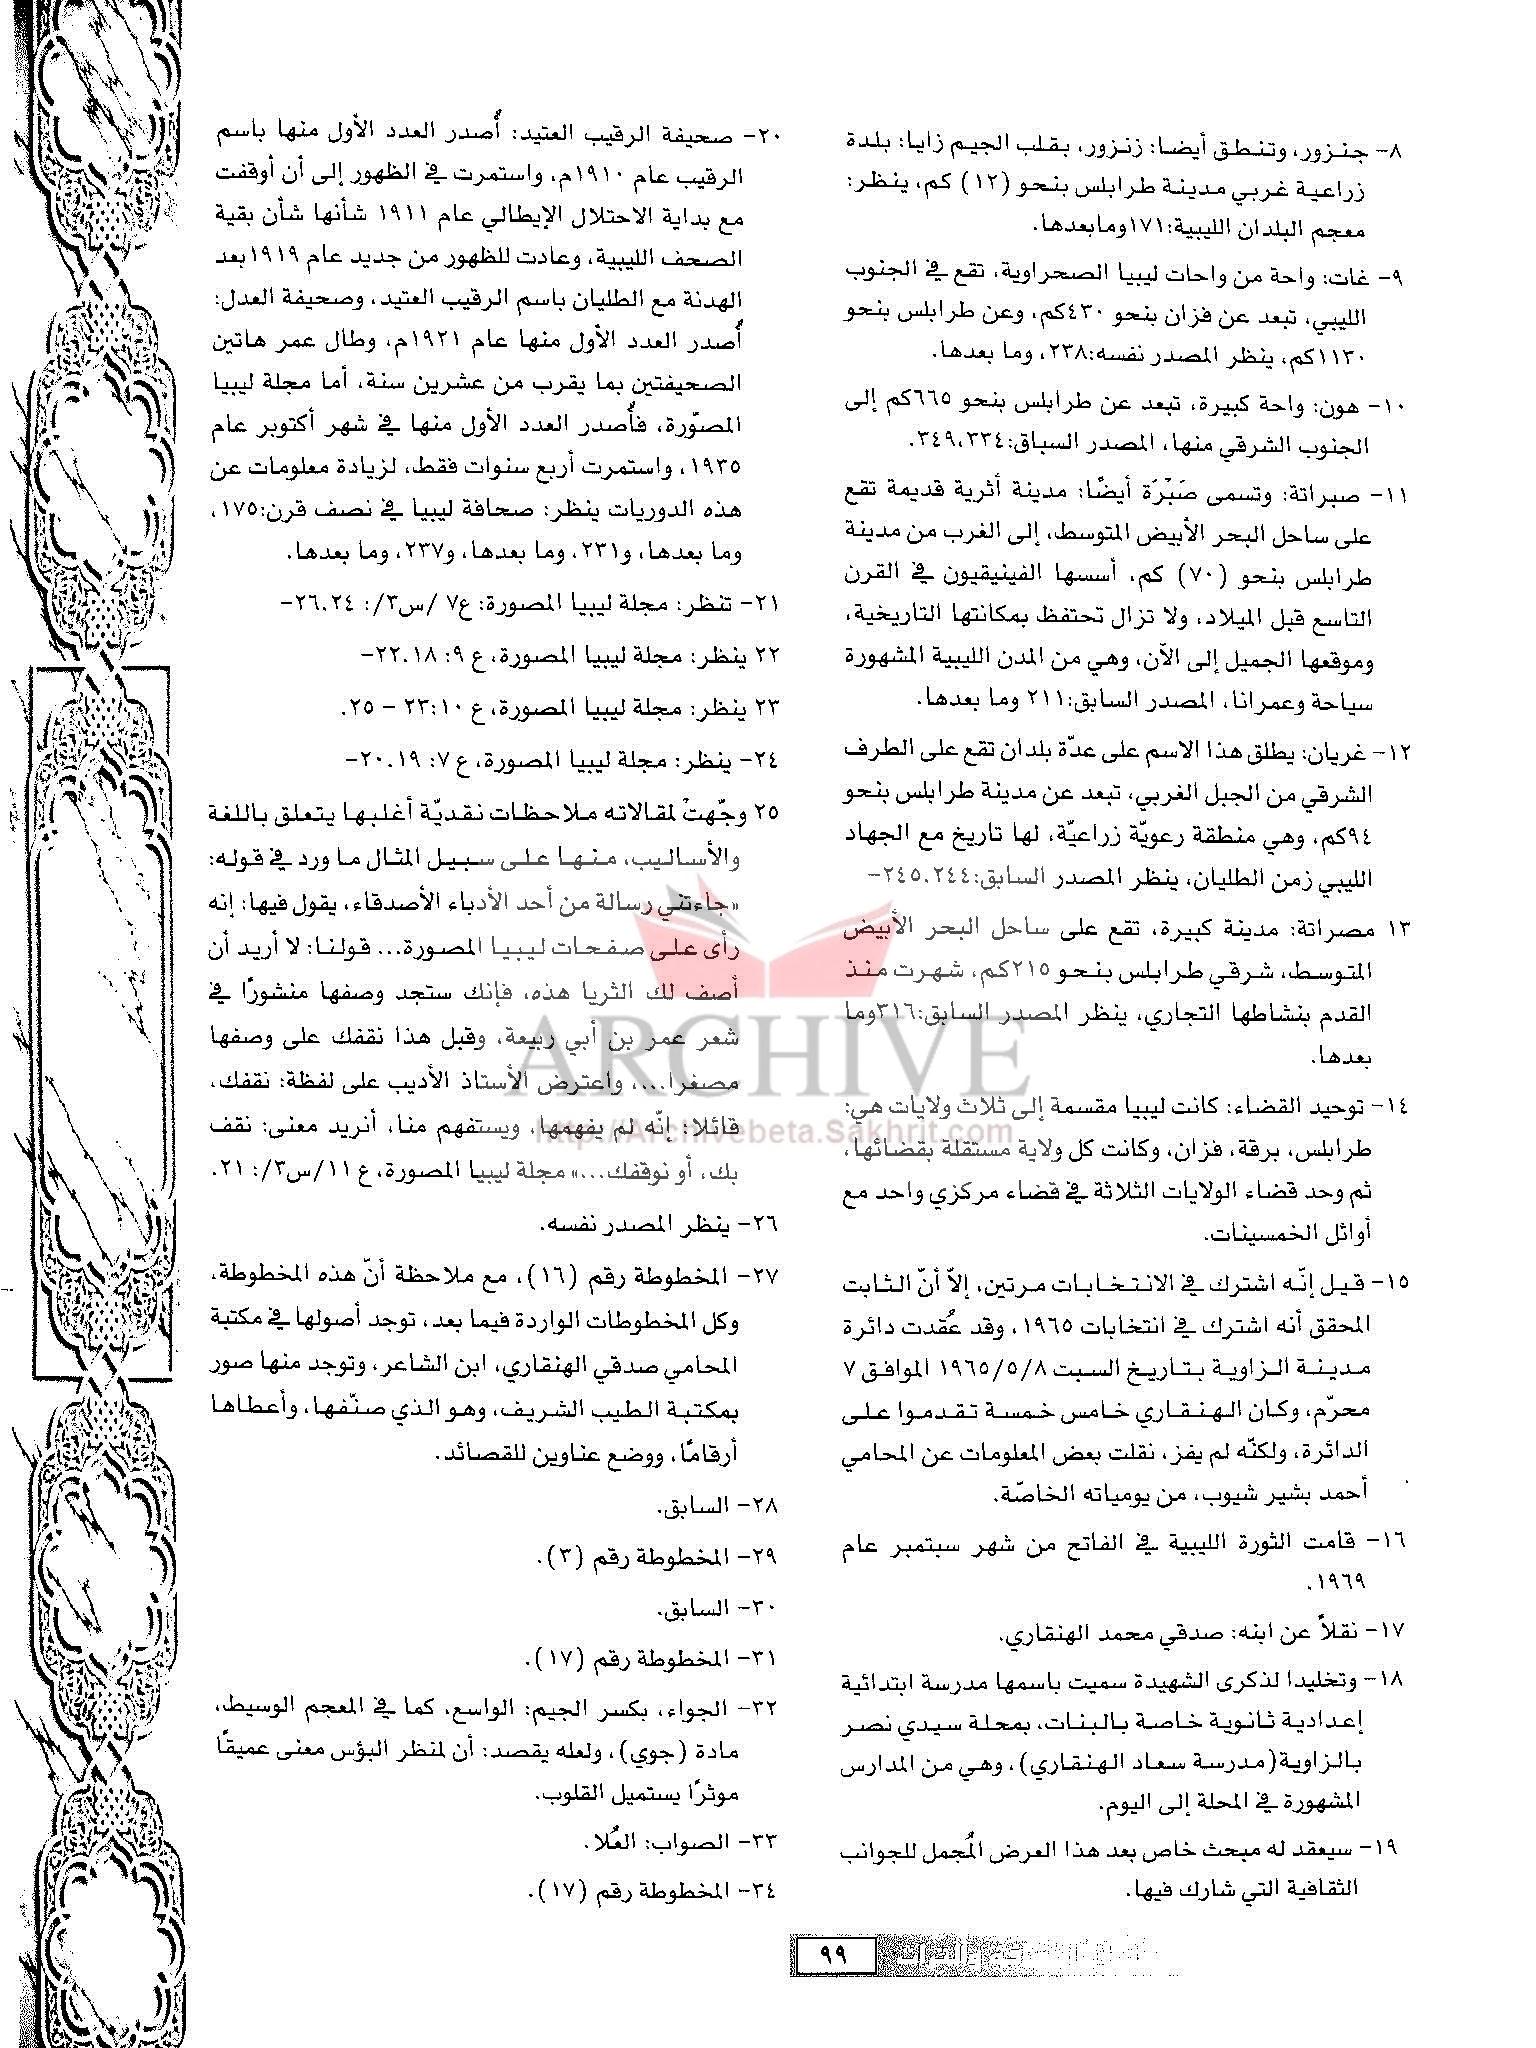 ٨- جنزور، وتنطق أيضا: زنزور، بقلب الجيم زايا: بلدة
زراعية غربي مدينة طرابلس بنحو (١٢) كم، ينظر:
معجم البلدان الليبية:١٧١وما بعدها.
٩- غات: واحة من واحات ليبيا الصحراوية، تقع في الجنوب
الليبي، تبعد عن فزان بنحو ٤٣٠كم، وعن طرابلس بنحو
١١٣٠كم، ينظر المصدر نفسه:٢٣٨، وما بعدها.
١٠- هون: واحة كبيرة، تبعد عن طرابلس بنحو ٦٦٥كم إلى
الجنوب الشرقي منها، المصدر السباق:٣٤٩،٣٣٤.
١١- صبراتة: وتسمى صَبْرَة أيضًا: مدينة أثرية قديمة تقع
على ساحل البحر الأبيض المتوسط، إلى الغرب من مدينة
طرابلس بنحو (٧٠) كم، أسسها الفينيقيون في القرن
التاسع قبل الميلاد، ولا تزال تحتفظ بمكانتها التاريخية،
وموقعها الجميل إلى الآن، وهي من المدن الليبية المشهورة
سياحة وعمرانا، المصدر السابق:٢١١ وما بعدها.
١٢- غريان: يطلق هذا الاسم على عدّة بلدان تقع على الطرف
الشرقي من الجبل الغربي، تبعد عن مدينة طرابلس بنحو
٩٤كم، وهي منطقة رعويّة زراعيّة، لها تاريخ مع الجهاد
الليبي زمن الطليان، ينظر المصدر السابق:٢٤٥،٢٤٤-
١٣ مصراتة: مدينة كبيرة، تقع على ساحل البحر الأبيض
المتوسط، شرقي طرابلس بنحو ٢١٥كم، شهرت منذ
القدم بنشاطها التجاري، ينظر المصدر السابق:٣١٦وما
بعدها.
١٤- توحيد القضاء: كانت ليبيا مقسمة إلى ثلاث ولايات هي:
طرابلس، برقة، فزان، وكانت كل ولاية مستقلة بقضائها،
ثم وحد قضاء الولايات الثلاثة في قضاء مركزي واحد مع
أوائل الخمسينات.
١٥- قيل إنّه اشترك في الانتخابات مرتين، إلاّ أنّ الثابت
المحقق أنه اشترك في انتخابات ١٩٦٥، وقد عُقدت دائرة
مدينة الزاوية بتاريخ السبت ١٩٦٥/٥/٨ الموافق ٧
محرّم، وكان الهنقاري خامس خمسة تقدموا على
الدائرة، ولكنّه لم يفز، نقلت بعض المعلومات عن المحامي
أحمد بشير شيوب، من يومياته الخاصّة.
١٦- قامت الثورة الليبية في الفاتح من شهر سبتمبر عام
١٩٦٩.
١٧- نقلاً عن ابنه: صدقي محمد الهنقاري.
١٨- وتخليدا لذكرى الشهيدة سميت باسمها مدرسة ابتدائية
إعدادية ثانوية خاصة بالبنات، بمحلة سيدي نصر
بالزاوية(مدرسة سعاد الهنقاري)، وهي من المدارس
المشهورة في المحلة إلى اليوم.
١٩- سيعقد له مبحث خاص بعد هذا العرض المُجمل للجوانب
الثقافية التي شارك فيها.
٢٠- صحيفة الرقيب العتيد: أُصدر العدد الأول منها باسم
الرقيب عام ١٩١٠م، واستمرت في الظهور إلى أن أوقفت
مع بداية الاحتلال الإيطالي عام ١٩١١ شأنها شأن بقية
الصحف الليبية، وعادت للظهور من جديد عام ١٩١٩بعد
الهدنة مع الطليان باسم الرقيب العتيد، وصحيفة العدل:
أُصدر العدد الأول منها عام ١٩٢١م، وطال عمر هاتين
الصحيفتين بما يقرب من عشرين سنة، أما مجلة ليبيا
المصوّرة، فأُصدر العدد الأول منها في شهر أكتوبر عام
١٩٣٥، واستمرت أربع سنوات فقط، لزيادة معلومات عن
هذه الدوريات ينظر: صحافة ليبيا في نصف قرن:١٧٥،
وما بعدها، و٢٣١، وما بعدها، و٢٣٧، وما بعدها.
٢١- تنظر: مجلة ليبيا المصورة: ع٧ /س٣/: ٢٦،٢٤-
٢٢ ينظر: مجلة ليبيا المصورة، ع ٩: ٢٢،١٨-
٢٣ ينظر: مجلة ليبيا المصورة، ع ١٠:٢٣ – ٢٥.
٢٤- ينظر: مجلة ليبيا المصورة، ع ٧: ٢٠،١٩-
٢٥ وجّهتْ لمقالاته ملاحظات نقديّة أغلبها يتعلق باللغة
والأساليب، منها على سبيل المثال ما ورد في قوله:
«جاءتني رسالة من أحد الأدباء الأصدقاء، يقول فيها: إنه
رأى على صفحات ليبيا المصورة... قولنا: لا أريد أن
أصف لك الثريا هذه، فإنك ستجد وصفها منشورًا في
شعر عمر بن أبي ربيعة، وقبل هذا نقفك على وصفها
مصغرا...، واعترض الأستاذ الأديب على لفظة: نقفك،
قائلا: إنّه لم يفهمها، ويستفهم منا، أنريد معنى: نقف
بك، أو نوقفك...» مجلة ليبيا المصورة، ع ١١/س٣/: ٢١.
٢٦- ينظر المصدر نفسه.
٢٧- المخطوطة رقم (١٦)، مع ملاحظة أنّ هذه المخطوطة،
وكل المخطوطات الواردة فيما بعد، توجد أصولها في مكتبة
المحامي صدقي الهنقاري، ابن الشاعر، وتوجد منها صور
بمكتبة الطيب الشريف، وهو الذي صنّفها، وأعطاها
أرقامًا، ووضع عناوين للقصائد.
٢٨- السابق.
٢٩- المخطوطة رقم (٣).
٣٠- السابق.
٣١- المخطوطة رقم (١٧).
٣٢- الجواء، بكسر الجيم: الواسع، كما في المعجم الوسيط،
مادة (جوي)، ولعله يقصد: أن لمنظر البؤس معنى عميقًا
موثرًا يستميل القلوب.
٣٣- الصواب: العُلا.
٣٤- المخطوطة رقم (١٧).
ARCHIVE
http://Archivebeta.Sakhrit.com
٩٩